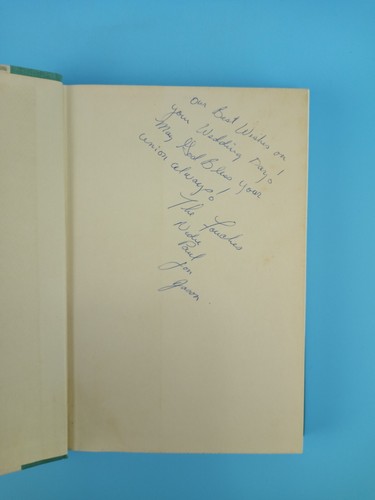 Our Best Wishes on
your Wedding Day!
May God Bless your
union always!
The
Paul
Jon
Jason